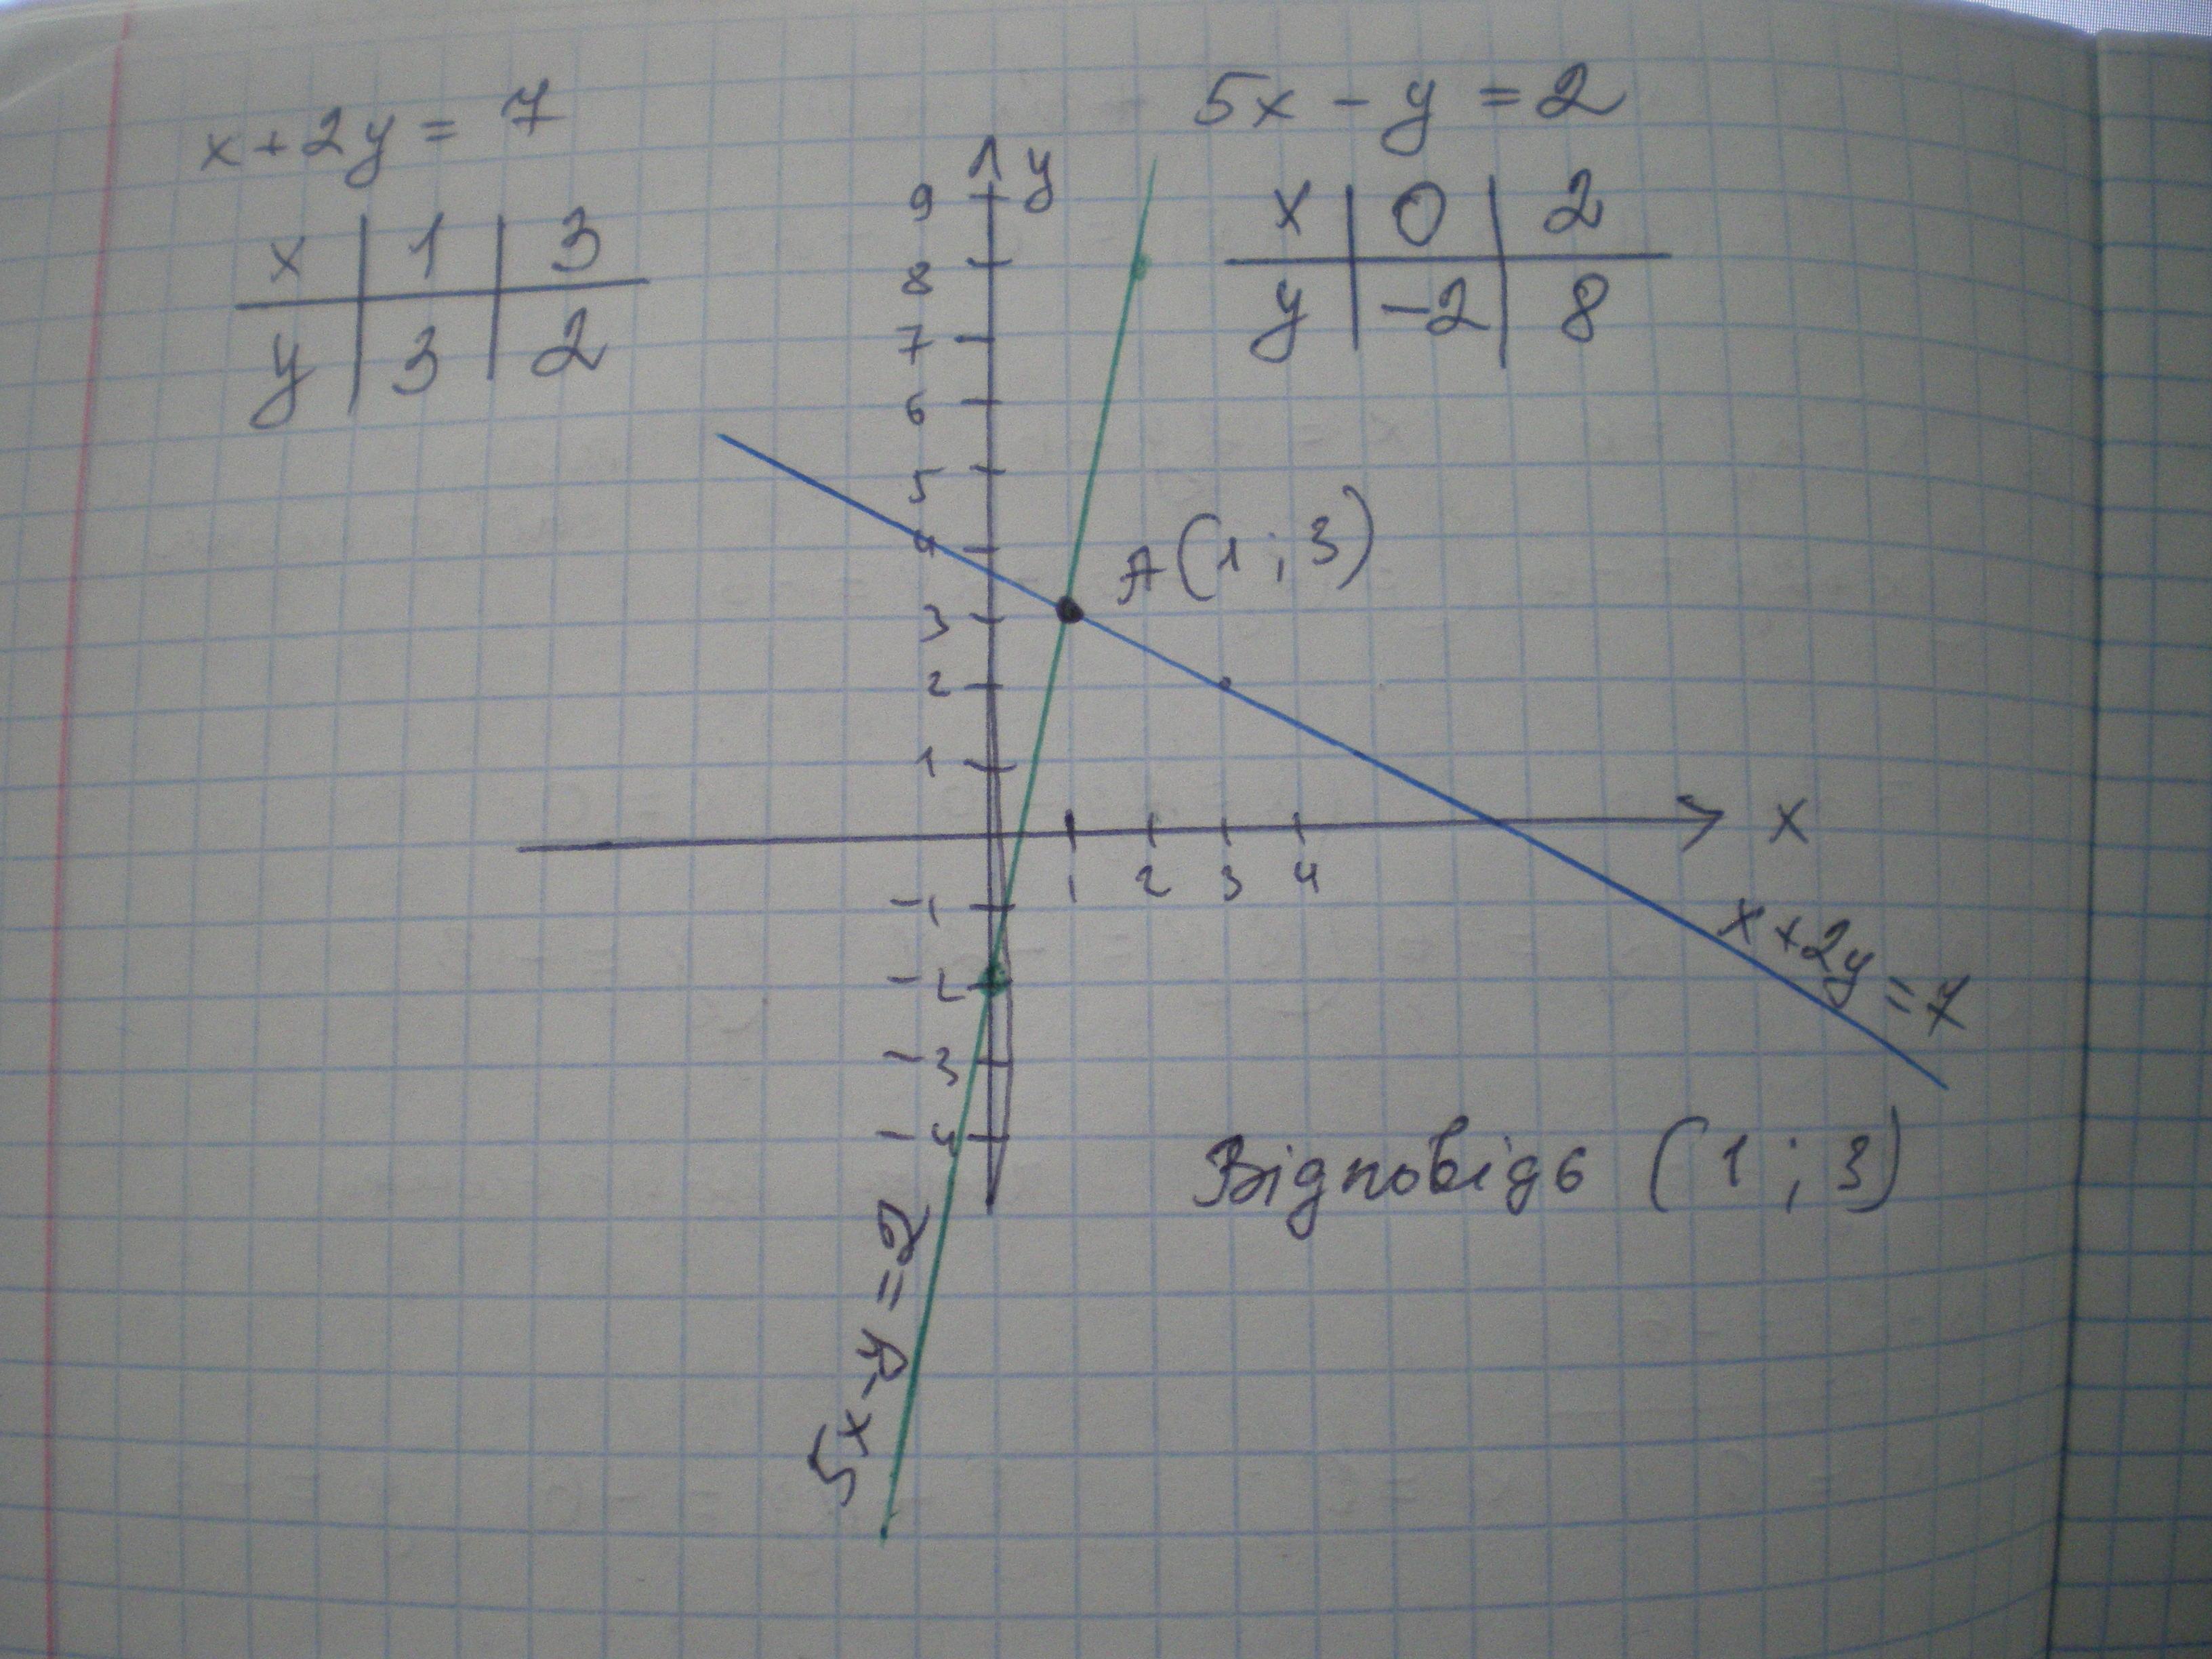 x + 2y = 7
x | 1 | 3
y | 3 | 2
5x - y = 2
x | 0 | 2
y | -2 | 8
y
9
8
7
6
5
4
3
2
1
-1
-2
-3
-4
A(1 ; 3)
1 2 3 4
x
x + 2y = 7
5x - y = 2
Відповідь (1 ; 3)